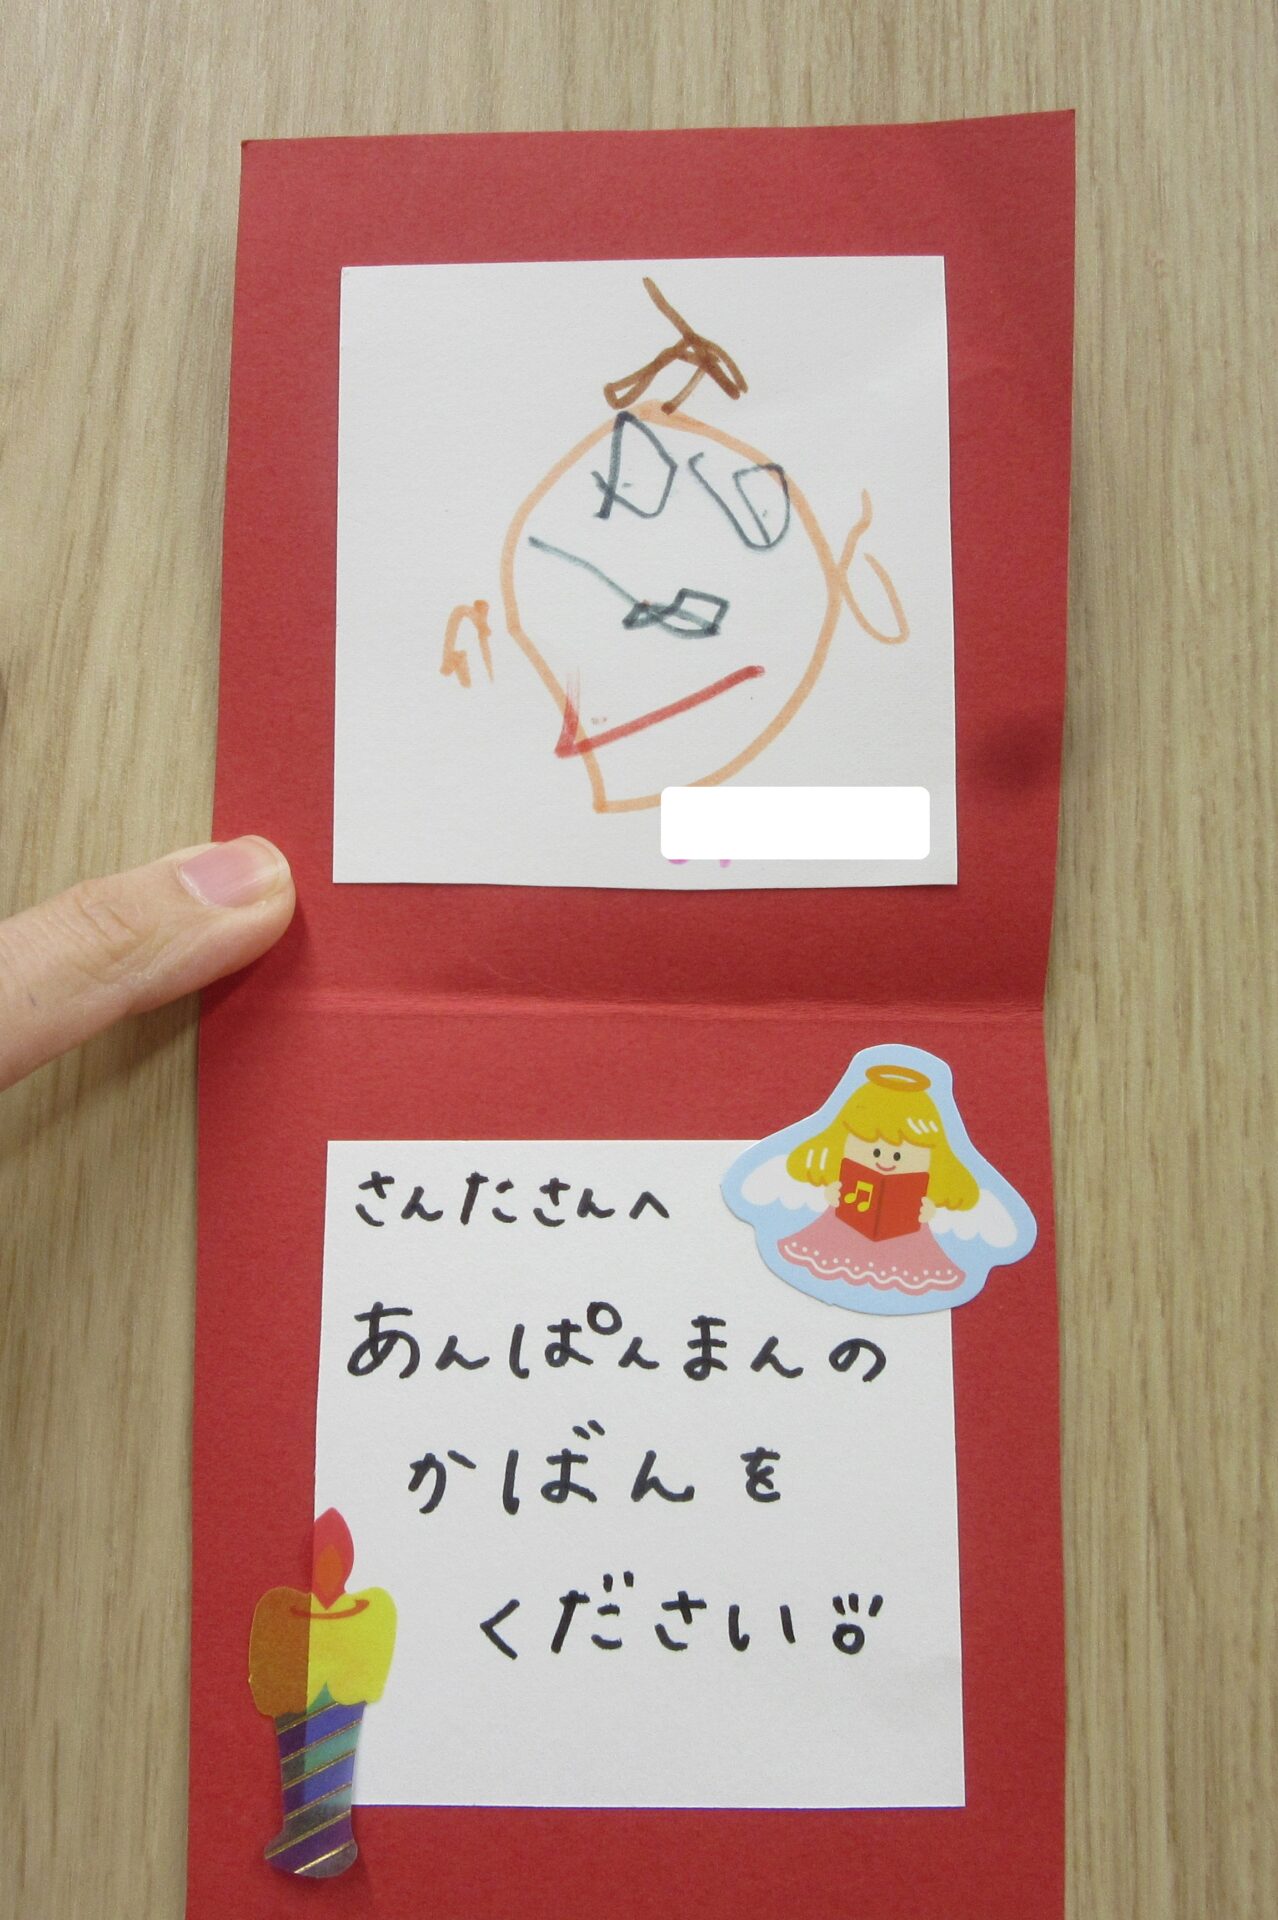 さんたさんへ
あんぱんまんの
かばんを
ください